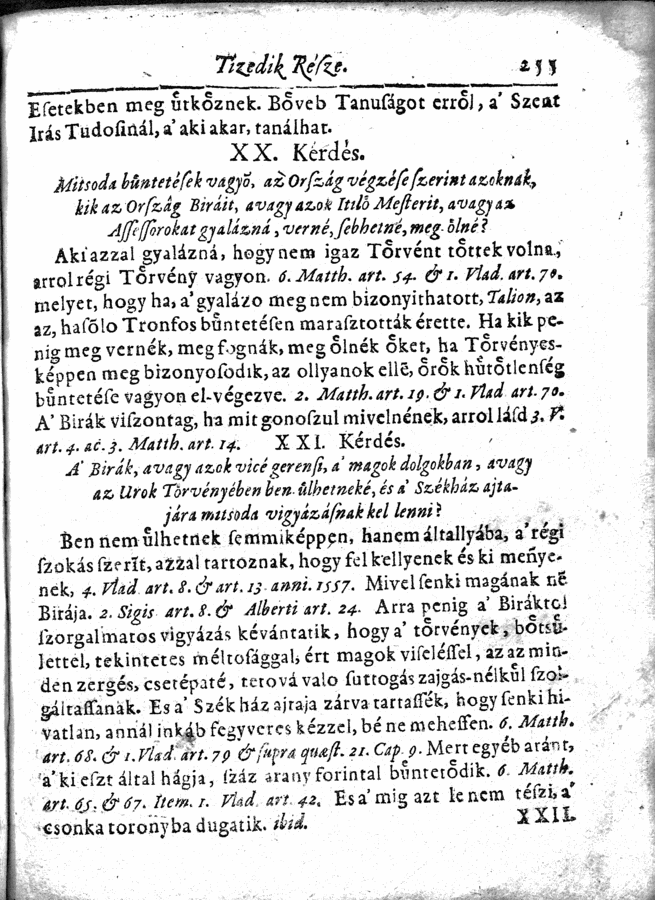 Tizedik Réſze. 255
Eſetekben meg u̇tkőznek. Bőveb Tanuſágot erről, a' Szent
Irás Tudoſinál, a' aki akar, tanálhat.
XX. Kérdés.
Mitsoda bůntetéſek vagyō, az Orſzág végzéſe ſzerint azoknak,
kik az Orſzág Biráit, avagy azok Itilő Meſterit, avagy az
Aſſeſſorokat gyalázná, verné, ſebhetné, meg ölné?
Aki azzal gyalázná, hogy nem igaz Tőrvént tőttek volna,
arrol régi Tőrvény vagyon. 6. Matth. art. 54. & 1. Vlad. art. 70.
melyet, hogy ha, a' gyalázo meg nem bizonyithatott, Talion, az
az, haſōlo Tronfos bůntetéſen maraſztották érette. Ha kik pe-
nig meg vernék, meg fognák, meg őlnék őket, ha Tőrvényes-
képpen meg bizonyoſodik, az ollyanok ellē, őrők hůtőtlenſég
bůntetéſe vagyon el-végezve. 2. Matth. art. 19. & 1. Vlad art. 70.
A' Birák viſzontag, ha mit gonoſzul mivelnének, arrol láſd 3. V.
art. 4. ac. 3. Matth. art. 14. XXI. Kérdés.
A' Birák, avagy azok vicé gerenſi, a' magok dolgokban, avagy
az Urok Tőrvényében ben ůlhetneké, és a' Székház ajta-
jára mitsoda vigyázáſnak kel lenni?
Ben nem ůlhetnek ſemmiképpen, hanem általlyába, a' régi
ſzokás ſzerīt, azzal tartoznak, hogy fel kellyenek és ki meñye-
nek, 4. Vlad. art. 8. & art. 13. anni. 1557. Mivel ſenki magának nē
Birája. 2. Sigis art. 8. & Alberti art. 24. Arra penig a' Biráktol
ſzorgalmatos vigyázás kévántatik, hogy a' tőrvények, bőtsů-
lettel, tekintetes méltoſággal, ért magok viſeléſſel, az az min-
den zergés, csetépaté, tetová valo ſuttogás zajgás-nélkůl ſzol-
gáltaſſanak. Es a' Szék ház ajtaja zárva tartaſſék, hogy ſenki hi-
vatlan, annál inkáb fegyveres kézzel, bé ne meheſſen. 6. Matth.
art. 68. & 1. Vlad. art. 79 & ſupra quæſt. 21. Cap. 9. Mert egyéb aránt,
a' ki eſzt által hágja, ſzáz arany forintal bůntetődik. 6. Matth.
art. 65. & 67. Item. 1. Vlad. art. 42. Es a' mig azt le nem téſzi, a'
csonka toronyba dugatik. ibid.
XXII.